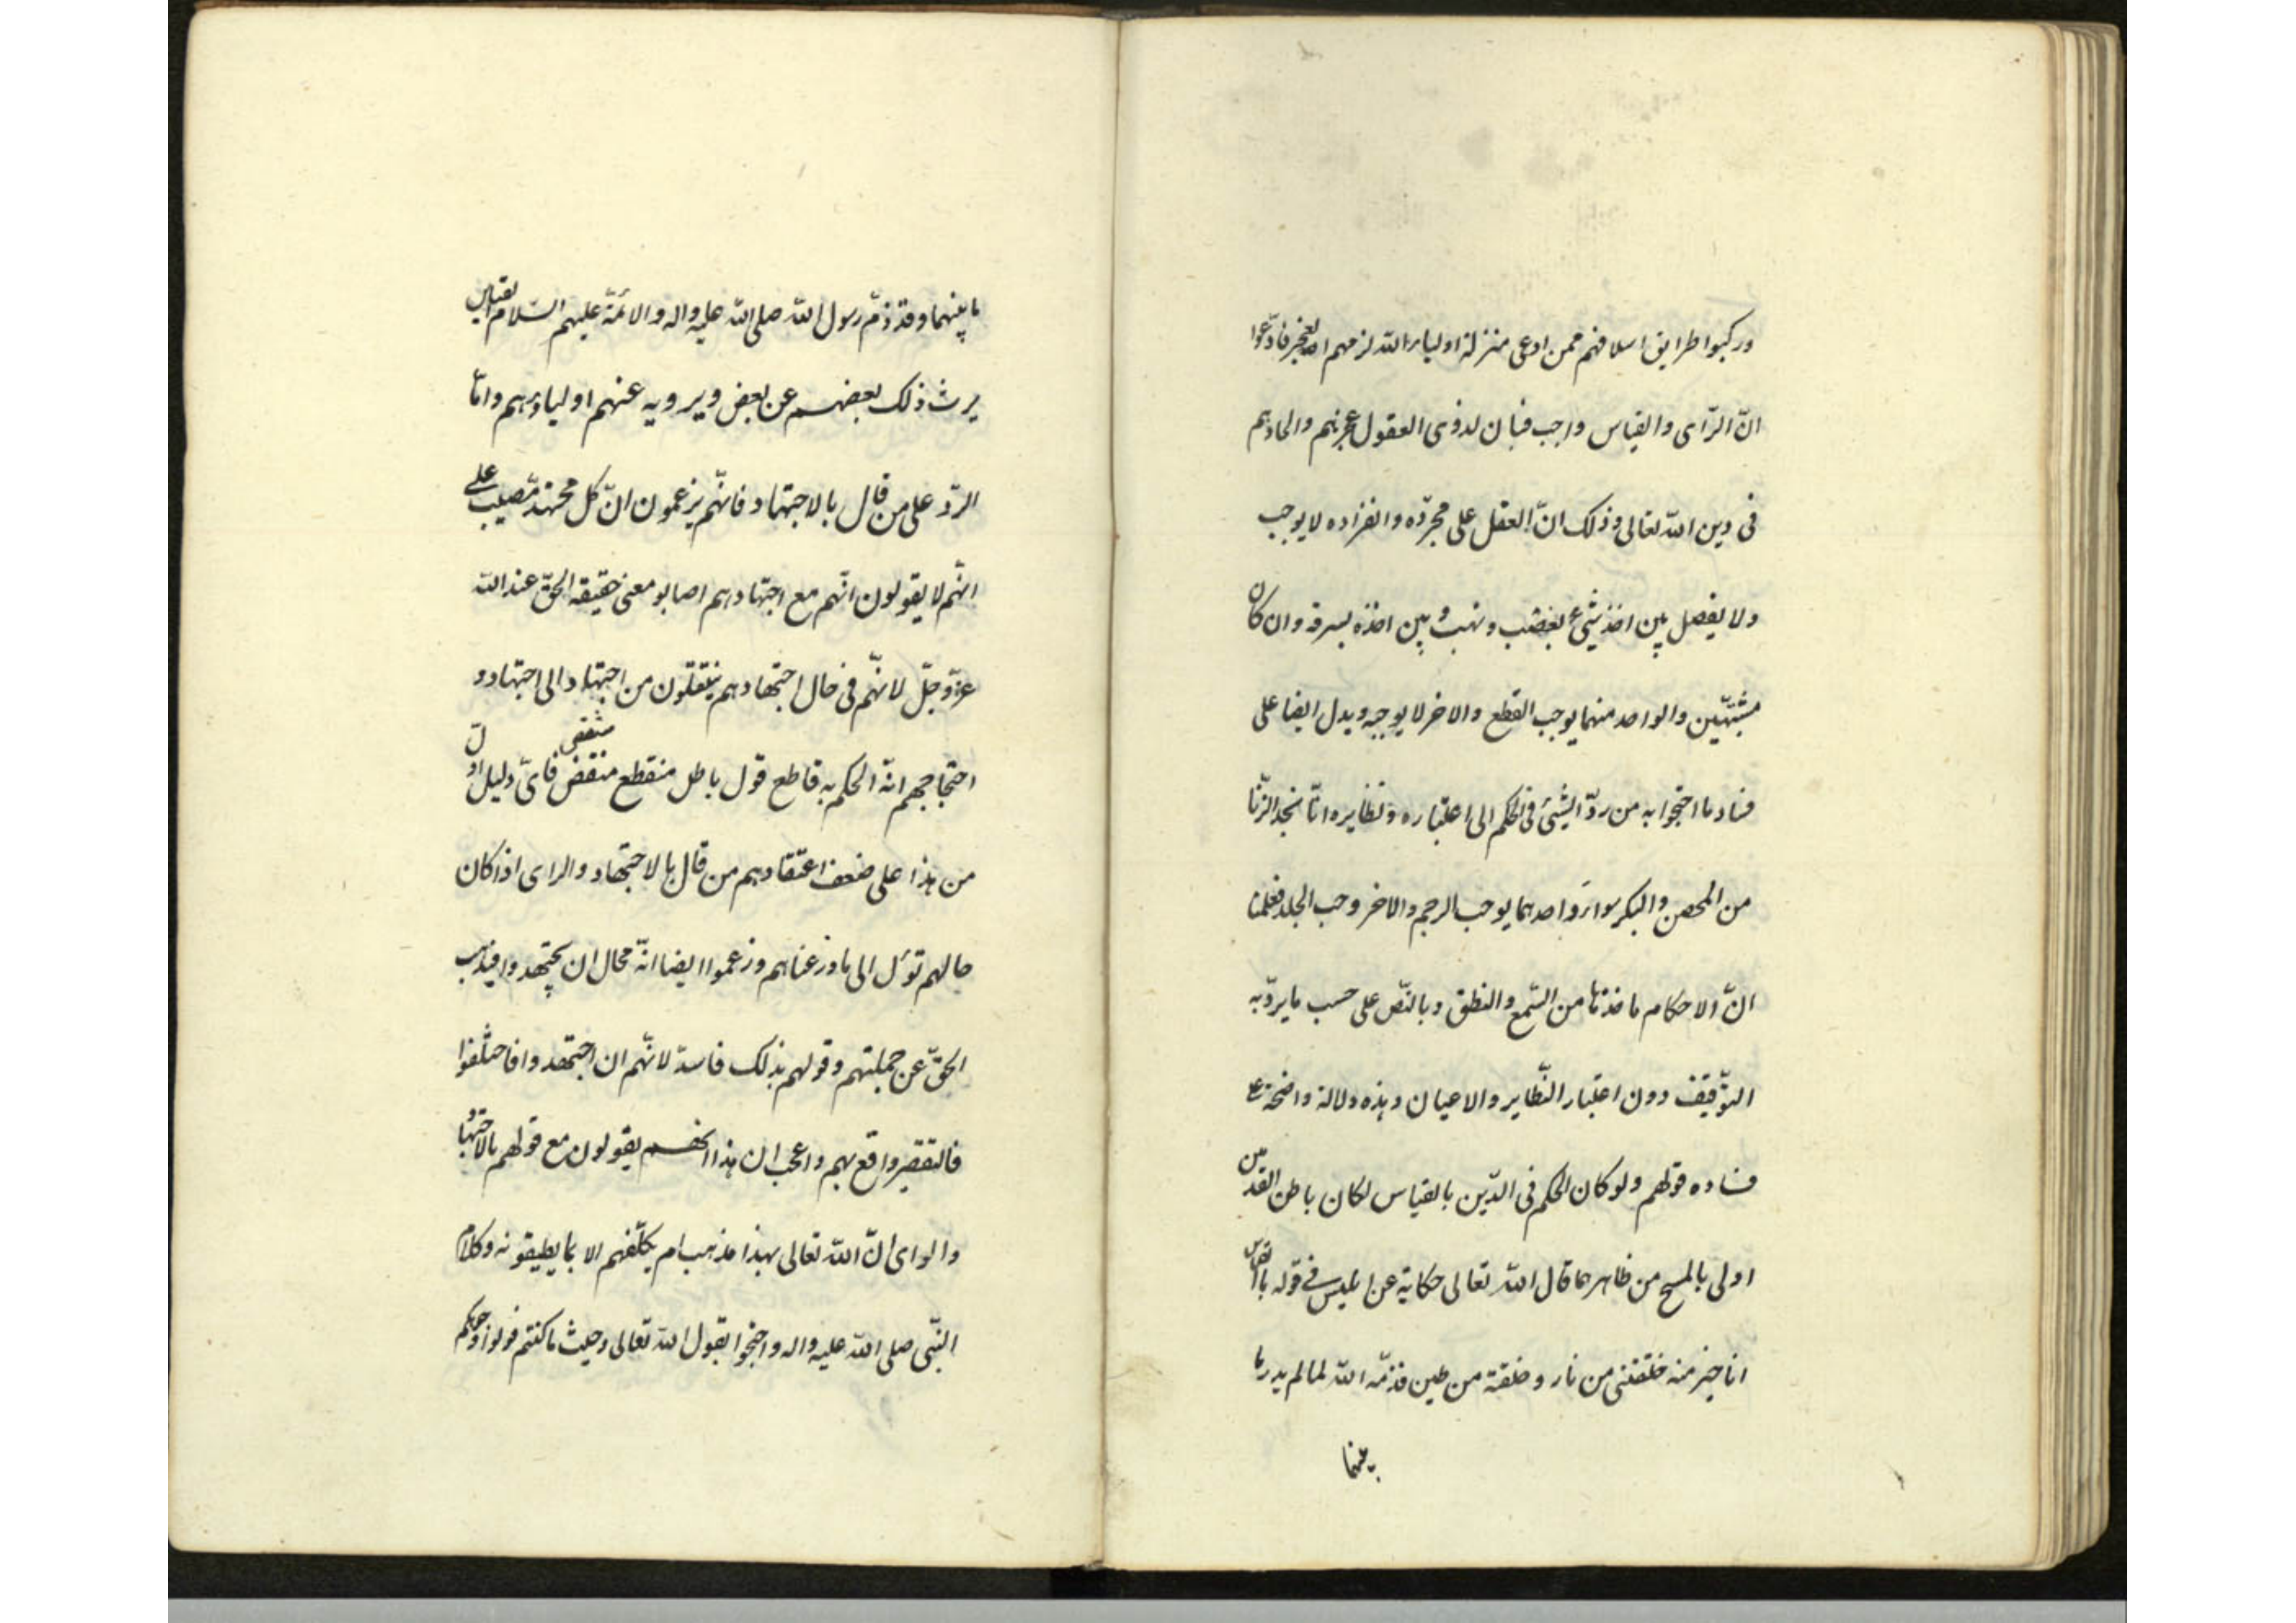 وركبوا طرايق اسلافهم ممن ادعى منزلة اولياء الله لزمهم العجز فادّعوا
انّ الرّاى والقياس واجب فبان لذوى العقول عجزهم والحادهم
فى دين الله تعالى وذلك انّ العقل على مجرّده وانفراده لا يوجب
ولا يفصل بين اخذ شىء بغضب ونهب و بين اخذه بسرقه وان كان
مشتبهين والواحد منهما يوجب القطع والاخر لا يوجبه ويدل ايضا على
فساد ما احتجوا به من ردّ الشئ فى الحكم الى اعتباره ونظايره انّا نجد الزّنا
من المحصن والبكر سواء واحدهما يوجب الرجم والاخر وجب الجلد فعلمنا
انّ الاحكام ماخذها من السّمع والنطق وبالنّص على حسب ما يردّ به
التّوقيف دون اعتبار النّظاير والاعيان وهذه دلالة واضحة على
فساده قولهم ولو كان الحكم فى الدّين بالقياس لكان باطن القدمين
اولى بالمسح من ظاهرهما قال الله تعالى حكاية عن ابليس فى قوله بالقياس
انا خير منه خلقتنى من نار وخلقته من طين فذمّه الله لما لم يدر ما
بينهما
ما بينهما وقد ذمّ رسول الله صلى الله عليه واله والائمّة عليهم السّلام القياس
يرث ذلك بعضهم عن بعض ويرويه عنهم اولياؤهم وامّا
الردّ على من قال بالاجتهاد فانّهم يزعمون انّ كل مجتهد مصيب على
انّهم لا يقولون انّهم مع اجتهادهم اصابو معنى حقيقه الحقّ عند الله
عزّ وجلّ لانّهم فى حال اجتهادهم ينتقلون من اجتهاد الى اجتهاد و
احتجاجهم انّ الحكم به قاطع قول باطل منقطع منقض فاىّ دليل ادلّ
من هذا على ضعف اعتقادهم من قال بالاجتهاد والراى اذا كان
حالهم تؤل الى ما وزعناهم وزعموا ايضا انّه محال ان يجتهدوا فيذهب
الحقّ عن جملتهم وقولهم بذلك فاسدّ لانّهم ان اجتهدوا فاختلفوا
فالتقصير واقع بهم واعجب ان هذا انهم يقولون مع قولهم بالاجتهاد
والراى انّ الله تعالى بهذا مذهب لم يكلّفهم الا بما يطيقونه وكلام
النّبى صلى الله عليه واله واحتجوا بقول الله تعالى وحيث ما كنتم فولوا وجوهكم